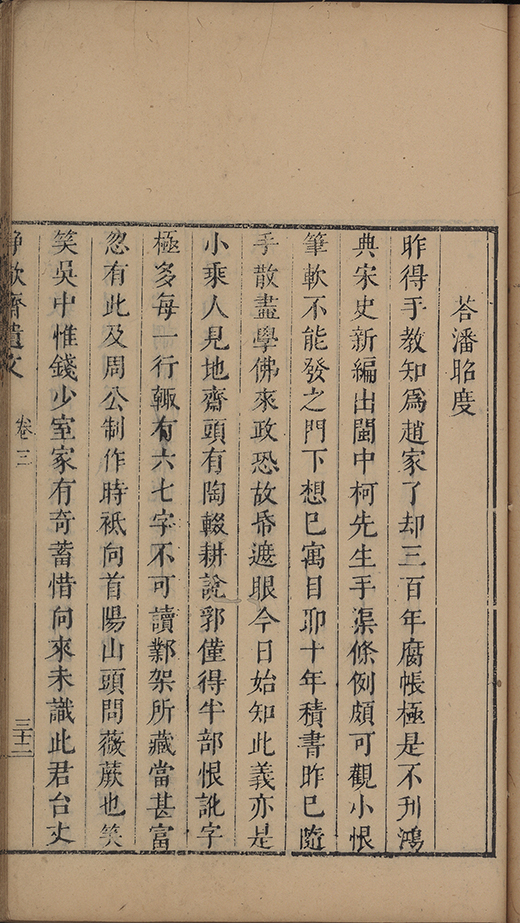 荅潘昭度
昨得手教知爲趙家了却三百年腐帳極是不刋鴻
典宋史新編出閩中柯先生手渠條例頗可觀小恨
筆軟不能發之門下想已寓目耶十年積書昨已隨
手散盡學佛來政恐故帋遮眼今日始知此義亦是
小乘人見地齋頭有陶輟耕說郛僅得半部恨訛字
極多每一行輙有六七字不可讀鄴架所藏當甚富
忽有此及周公制作時祇向首陽山頭問薇蕨也笑
笑吳中惟錢少室家有奇蓄惜向來未識此君台丈
齋遺文 卷三 三十二